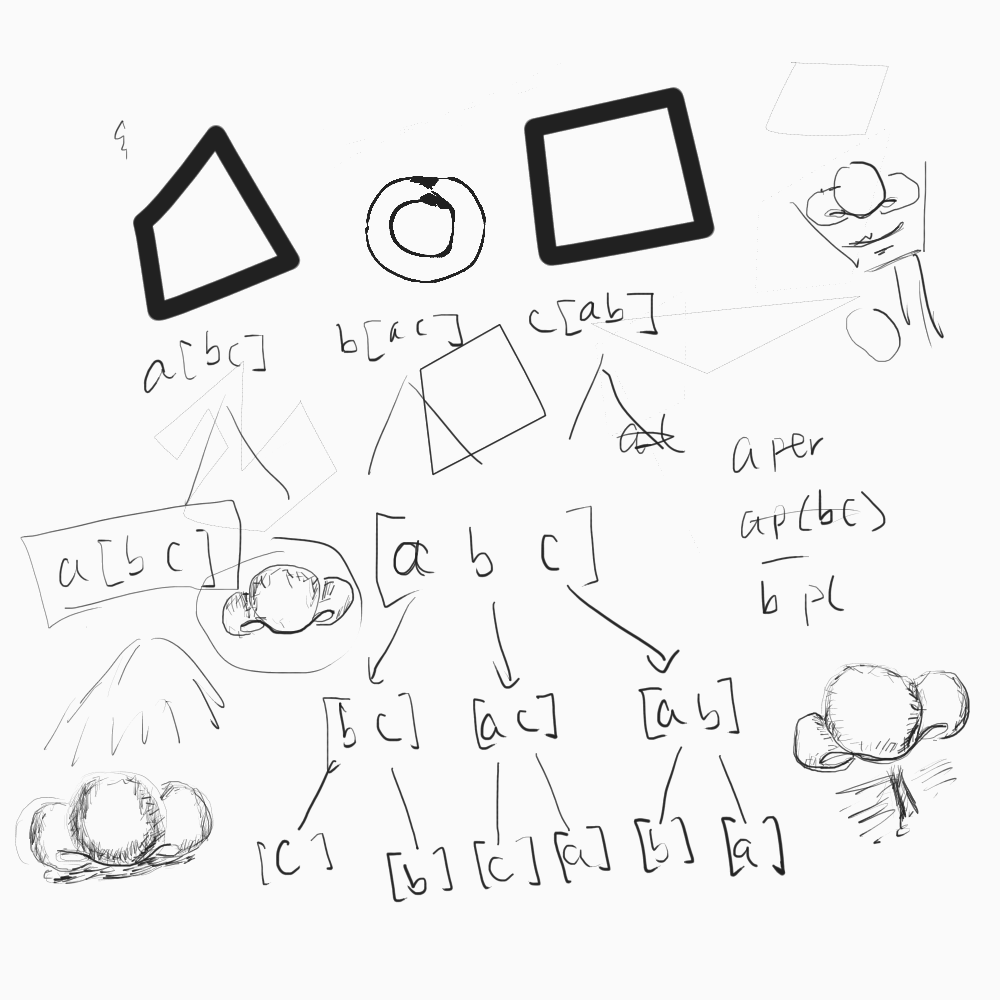 a[bc] b[ac] c[ab]
a per
ap(bc)
b pc
a[bc]
[a b c]
[bc] [ac] [ab]
[c] [b] [c] [a] [b] [a]